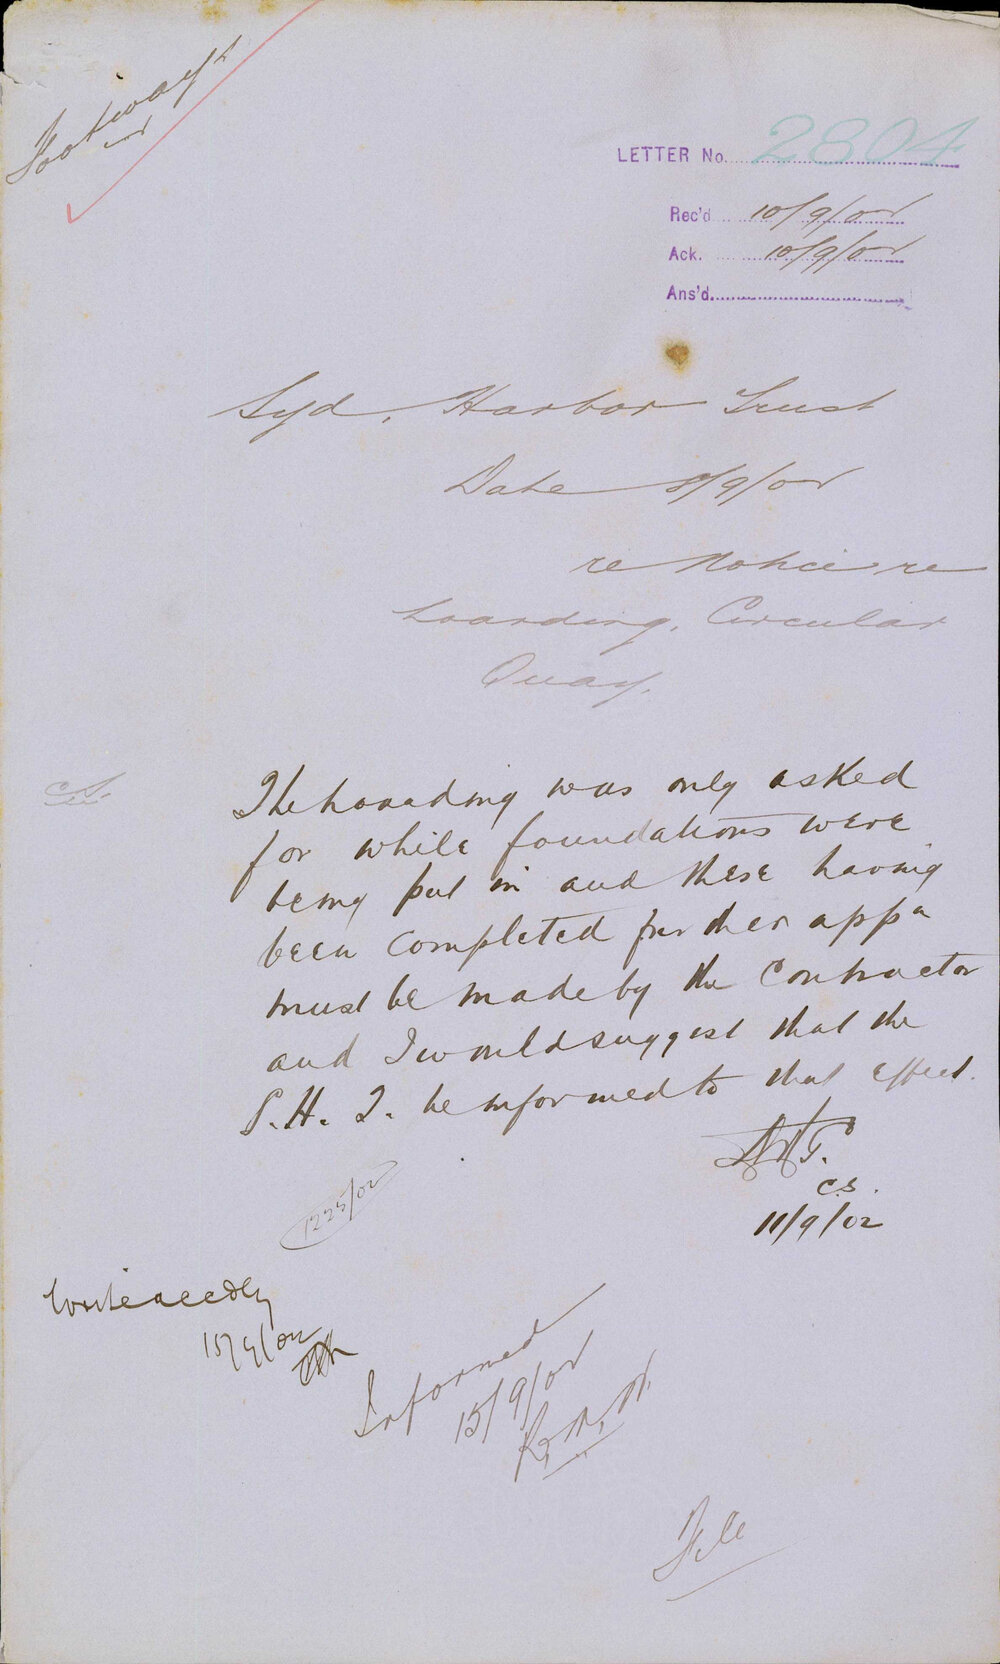 Footways
LETTER No. 2804
Rec'd 10/9/02
Ack. 10/9/02
Ans'd.
Syd. Harbor Trust
Date 8/9/02
re Notice re
hoarding, Circular
Quay.
C.S.
The hoarding was only asked
for while foundations were
being put in and these having
been completed further appn
must be made by the Contractor
and I would suggest that the
S. H. T. be informed to that effect.
C.S.
11/9/02
1225/02
Write accdly
15/9/02
Informed
15/9/02
File